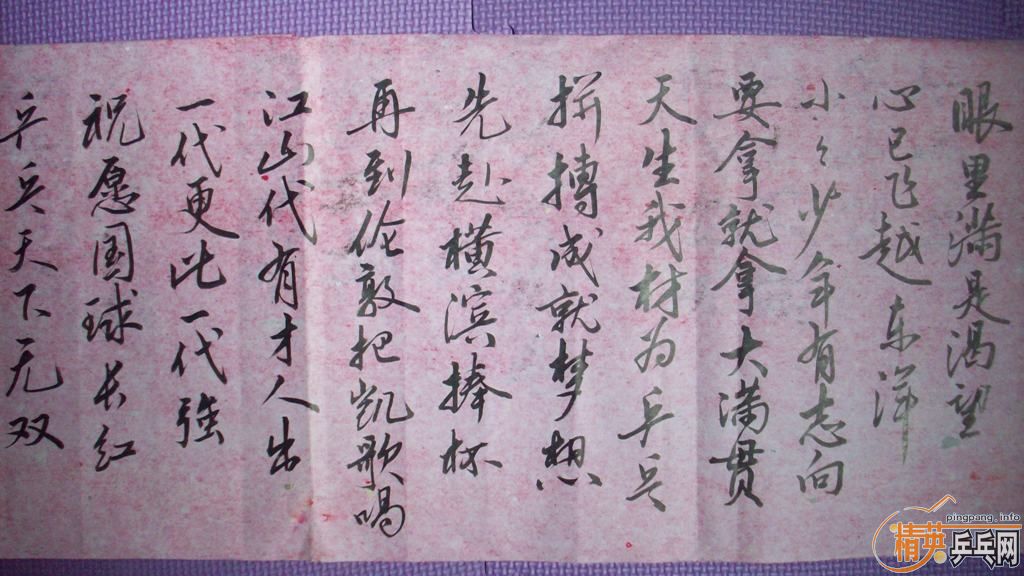 眼里满是渴望
心已飞越东洋
小々少年有志向
要拿就拿大满贯
天生我材为乒乓
拼搏成就梦想
先赴横滨捧杯
再到伦敦把凯歌唱
江山代有才人出
一代更比一代强
祝愿国球长红
乒乓天下无双
pingpang.info
精英乒乓网